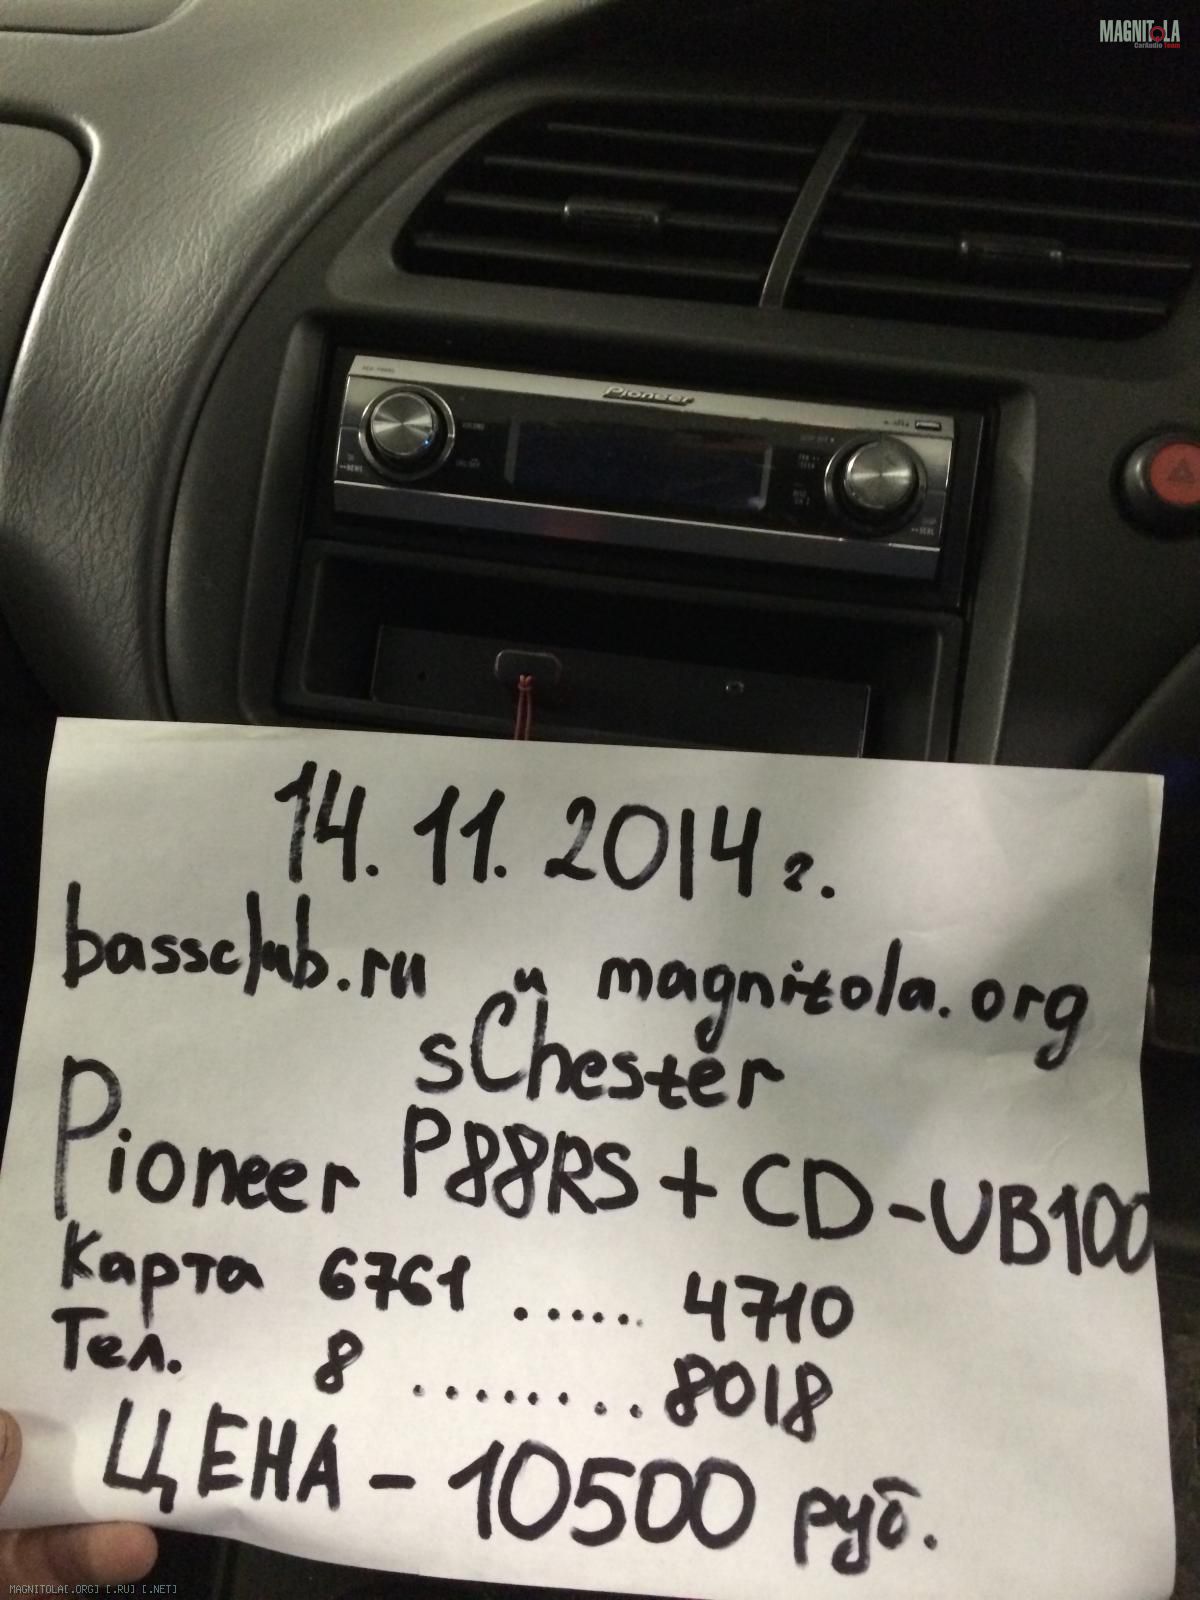 MAGNITOLA
CarAudio Team
Pioneer
VOLUME
14.11.2014 г.
bassclub.ru и magnitola.org
sChester
Pioneer P88RS + CD-UB100
Карта 6761 ..... 4710
Тел. 8 ........ 8018
ЦЕНА - 10500 руб.
MAGNITOLA[.ORG] [.RU] [.NET]